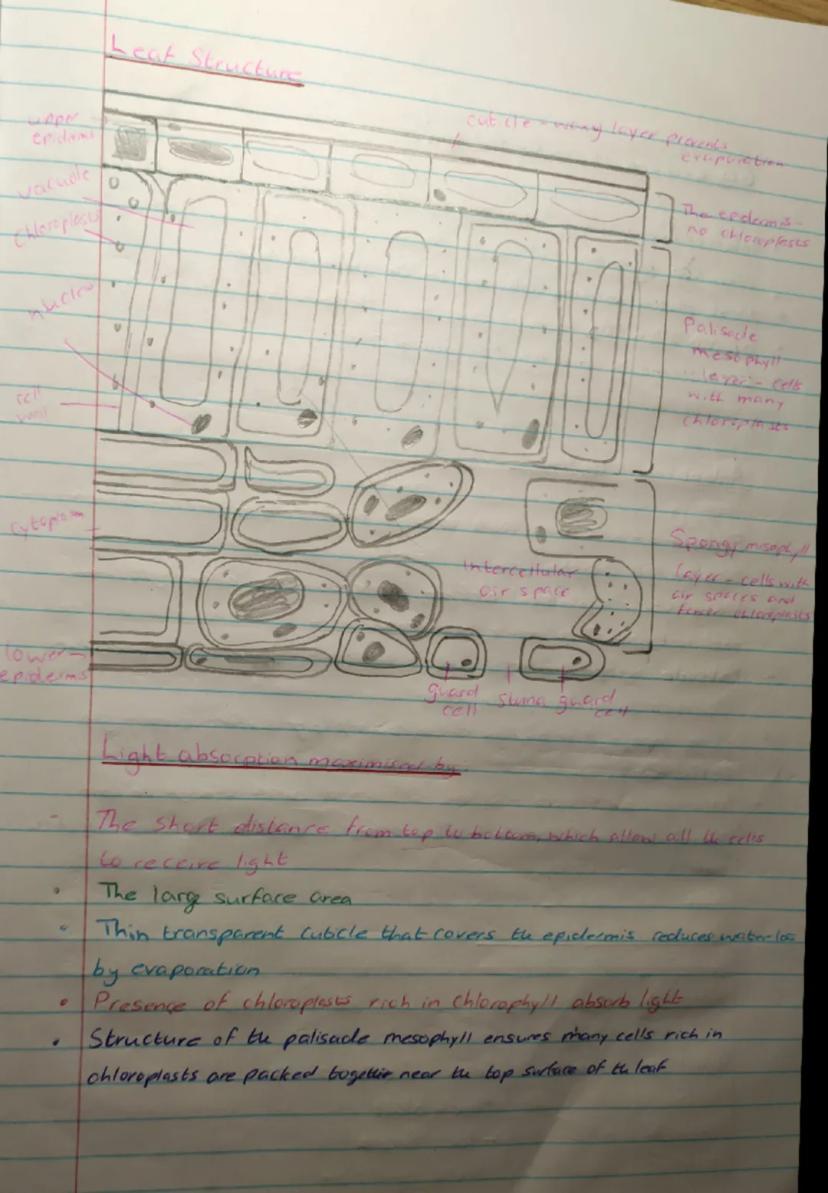 Leaf Structure
upper
epidermis
cuticle - waxy layer prevents
evaporation
vacuole
chloroplasts
The epidermis -
no chloroplasts
nucleus
Palisade
mesophyll
layer - cells
with many
chloroplasts
cell
wall
cytoplasm
Spongy mesophyll
layer - cells with
air spaces and
fewer chloroplasts
intercellular
air space
lower
epidermis
guard
cell
stoma
guard
cell
Light absorption maximised by
- The short distance from top to bottom, which allow all the cells
to receive light
• The large surface area
• Thin transparent cuticle that covers the epidermis reduces water loss
by evaporation
• Presence of chloroplasts rich in chlorophyll absorb light
• Structure of the palisade mesophyll ensures many cells rich in
chloroplasts are packed together near the top surface of the leaf